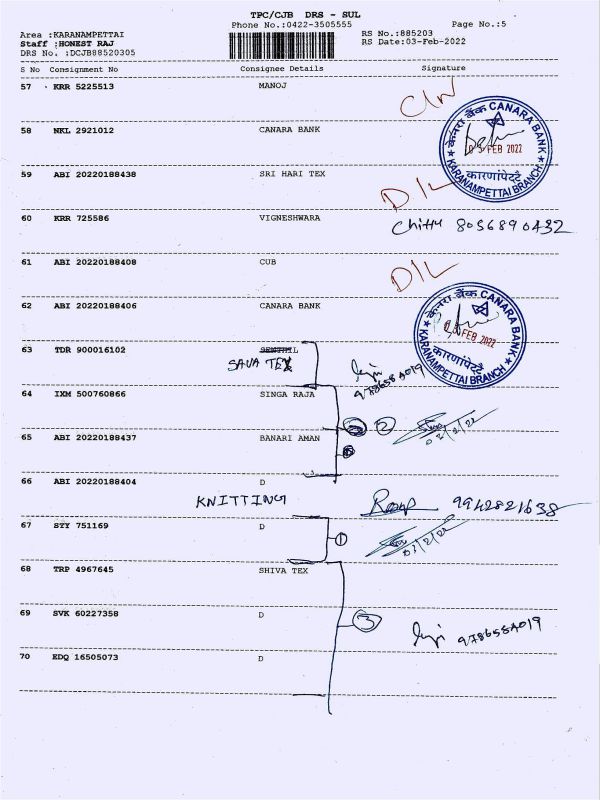 TPC/CJB DRS - SUL
Phone No.:0422-3505555 Page No.:5
Area :KARANAMPETTAI RS No.:885203
Staff :HONEST RAJ RS Date:03-Feb-2022
DRS No. :DCJB88520305
S No Consignment No Consignee Details Signature
57 KRR 5225513 MANOJ
58 NKL 2921012 CANARA BANK
केनरा बैंक CANARA BANK
03 FEB 2022
कारणांपेट्टै
KARANAMPETTAI BRANCH
59 ABI 20220188438 SRI HARI TEX D/L
60 KRR 725586 VIGNESHWARA Chithu 8056890432
61 ABI 20220188408 CUB D/L
62 ABI 20220188406 CANARA BANK
केनरा बैंक CANARA BANK
03 FEB 2022
कारणांपेट्टै
KARANAMPETTAI BRANCH
63 TDR 900016102 SENTHIL
SAVA TEX
64 IXM 500760866 SINGA RAJA
2 02/2/22
65 ABI 20220188437 BANARI AMAN
66 ABI 20220188404 D
KNITTING 9942821638
67 STY 751169 D
1 03/2/22
68 TRP 4967645 SHIVA TEX
69 SVK 60227358 D
3
70 EDQ 16505073 D